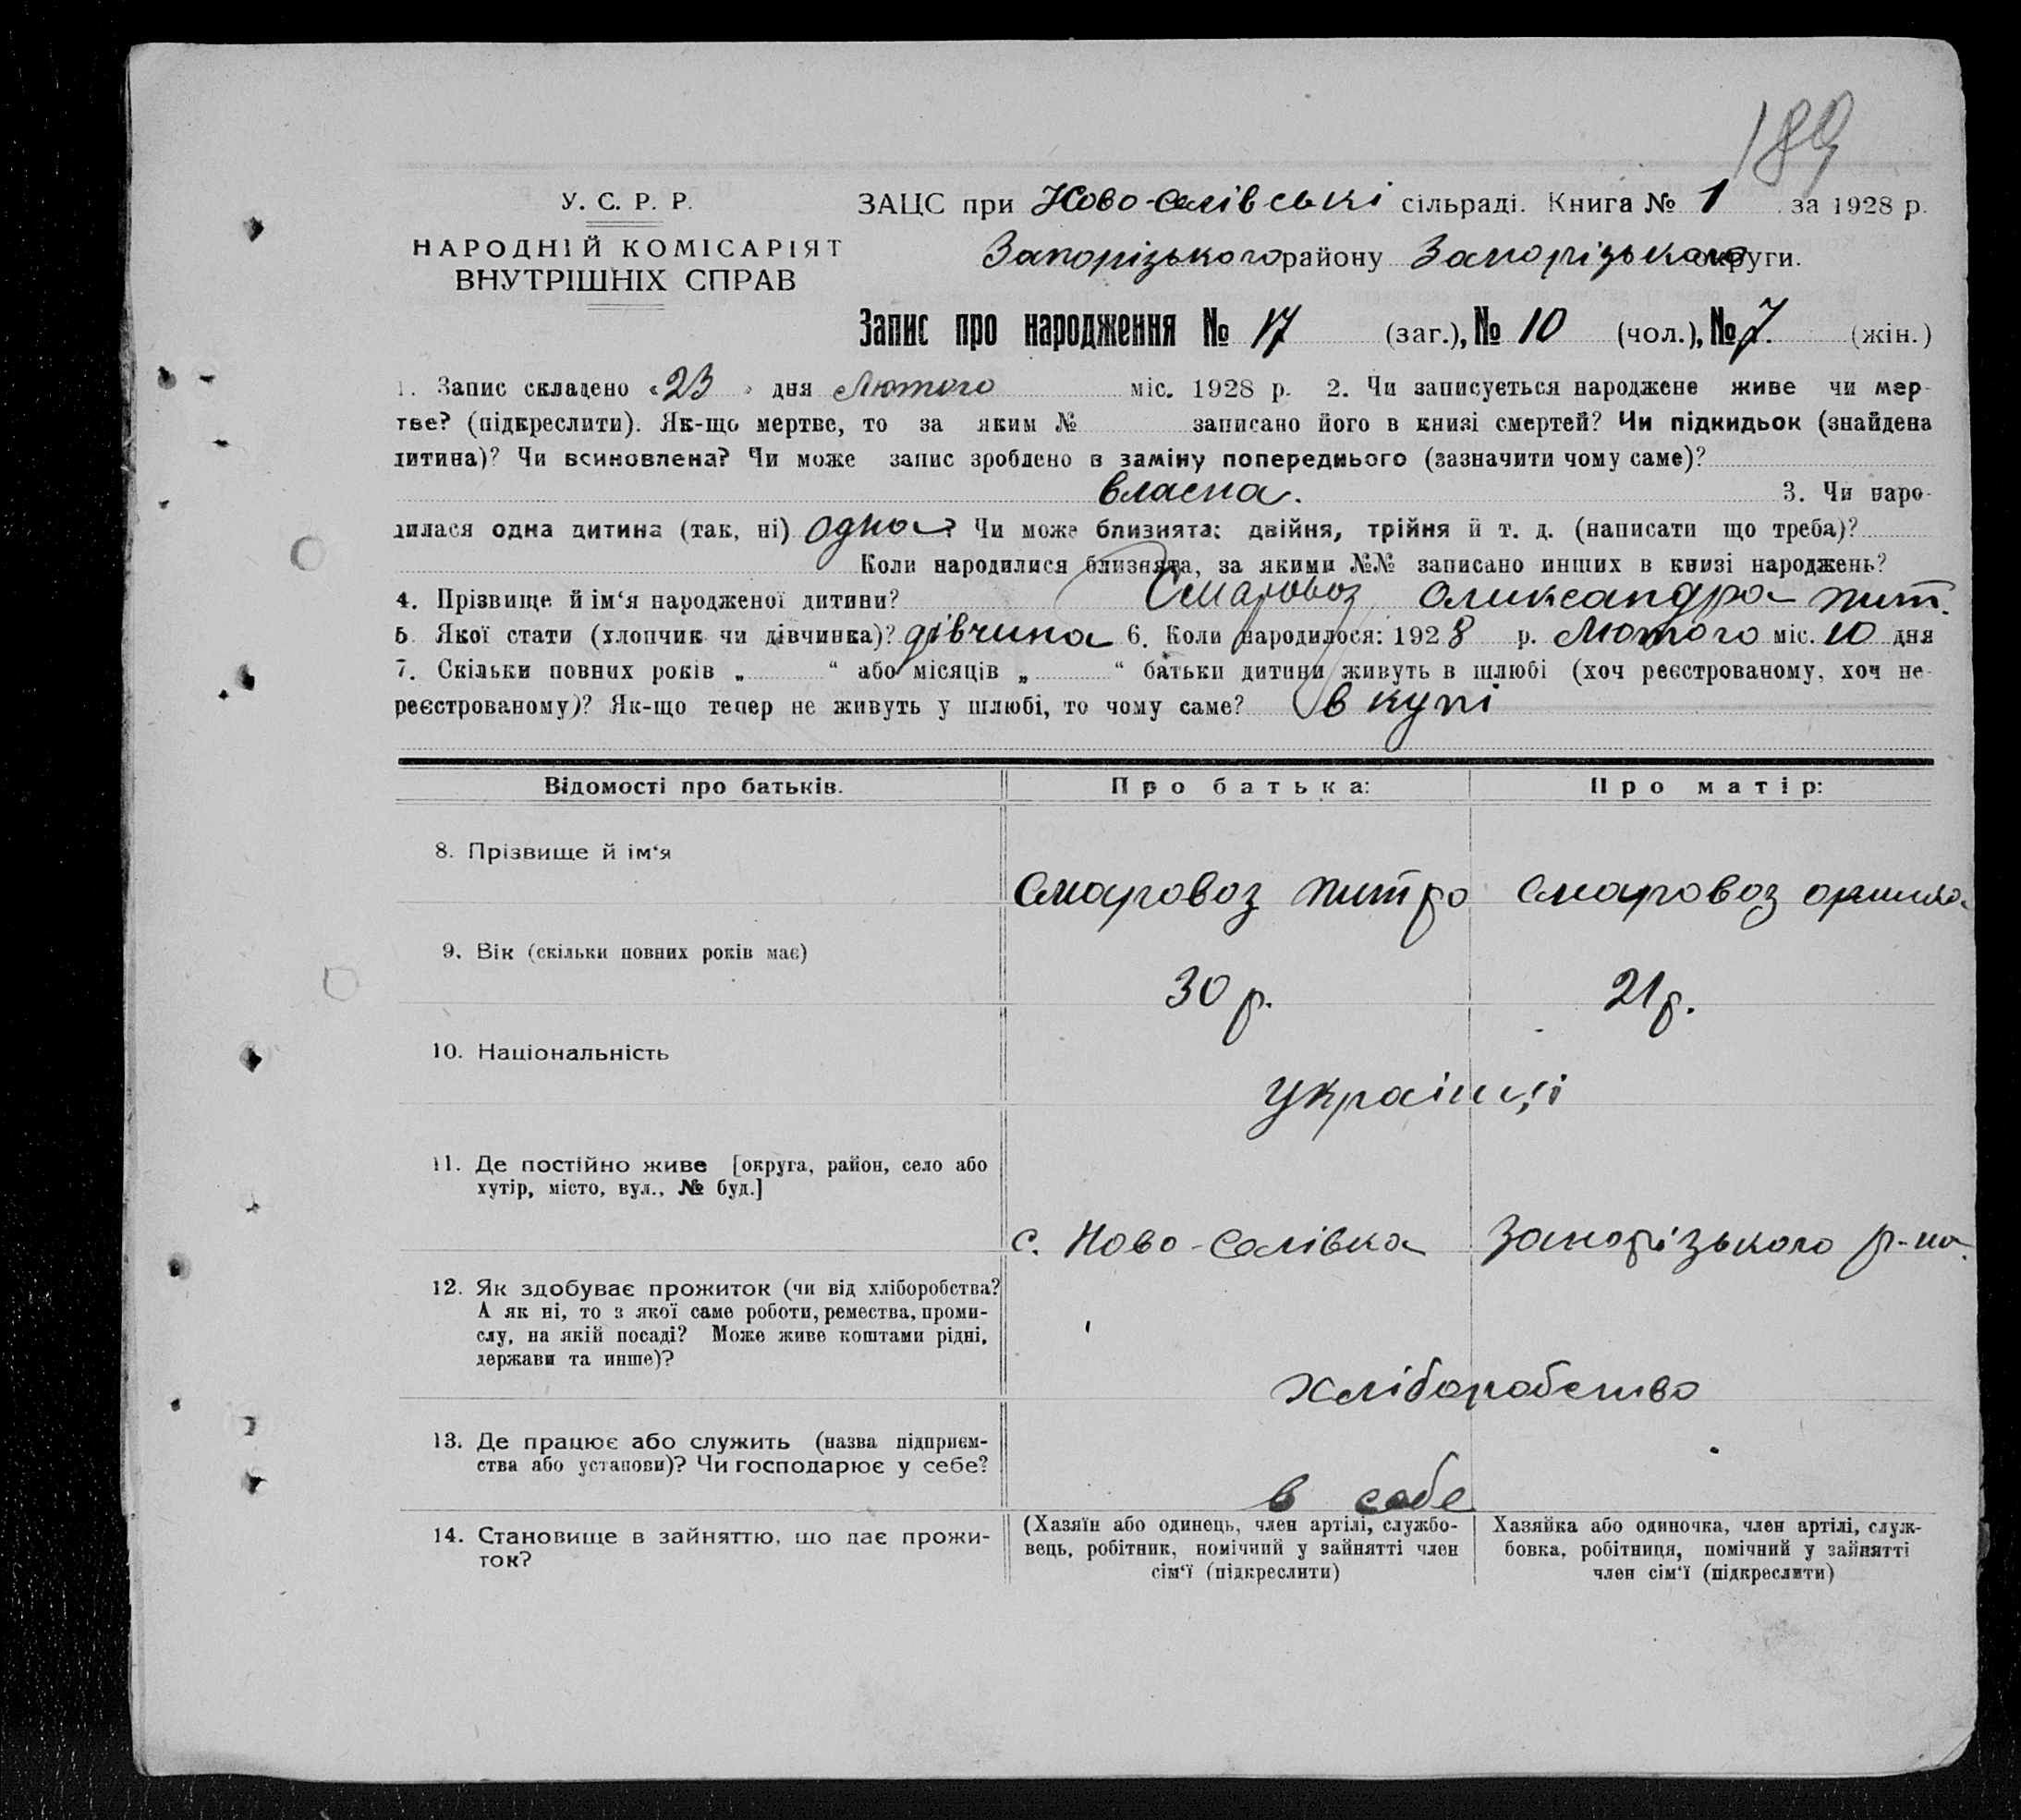 189
У. С. Р. Р.
НАРОДНІЙ КОМІСАРІЯТ
ВНУТРІШНІХ СПРАВ
ЗАЦС при Ново-Селівські сільраді. Книга № 1 за 1928 р.
Запорізького району Запорізького округи.
Запис про народження № 17 (заг.), № 10 (чол.), № 7. (жін.)
1. Запис складено «23» дня Лютого міс. 1928 р. 2. Чи записується народжене живе чи мер-
тве? (підкреслити). Як-що мертве, то за яким № записано його в книзі смертей? Чи підкидьок (знайдена
дитина)? Чи всиновлена? Чи може запис зроблено в заміну попереднього (зазначити чому саме)?
власна. 3. Чи наро-
дилася одна дитина (так, ні) одна? Чи може близнята: двійня, трійня й т. д. (написати що треба)?
Коли народилися близнята, за якими №№ записано инших в книзі народжень?
4. Прізвище й ім‘я народженої дитини? Смаровоз Олександра
5 Якої стати (хлопчик чи дівчинка)? дівчина 6. Коли народилося: 1928 р. Лютого міс. 10 дня
7. Скільки повних років „ “ або місяців „ “ батьки дитини живуть в шлюбі (хоч реєстрованому, хоч не-
реєстрованому)? Як-що тепер не живуть у шлюбі, то чому саме? в купі
Відомості про батьків. Про батька: Про матір:
8. Прізвище й ім‘я
Смаровоз Смаровоз
9. Вік (скільки повних років має)
30 р. 21 р.
10. Національність
українці
11. Де постійно живе [округа, район, село або
хутір, місто, вул., № буд.]
с. Ново-Селівка Запорізького р-на.
12. Як здобуває прожиток (чи від хліборобства?
А як ні, то з якої саме роботи, ремества, проми-
слу, на якій посаді? Може живе коштами рідні,
держави та инше)?
хліборобство
13. Де працює або служить (назва підприєм-
ства або установи)? Чи господарює у себе?
в себе
14. Становище в зайняттю, що дає прожи-
ток?
(Хазяїн або одинець, член артілі, службо-
вець, робітник, помічний у зайнятті член
сім‘ї (підкреслити)
Хазяйка або одиночка, член артілі, служ-
бовка, робітниця, помічний у зайнятті
член сім‘ї (підкреслити)